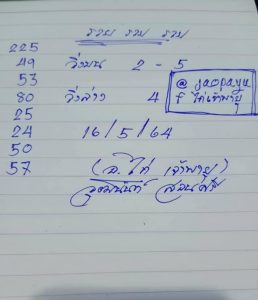 รวย รวย รวย
225
49
53
80
25
24
50
57
วิ่งบน 2 - 5
วิ่งล่าง 4
@ jaopayu
f ไก่เจ้าพายุ
16/5/64
(อ. ไก่ เจ้าพายุ)